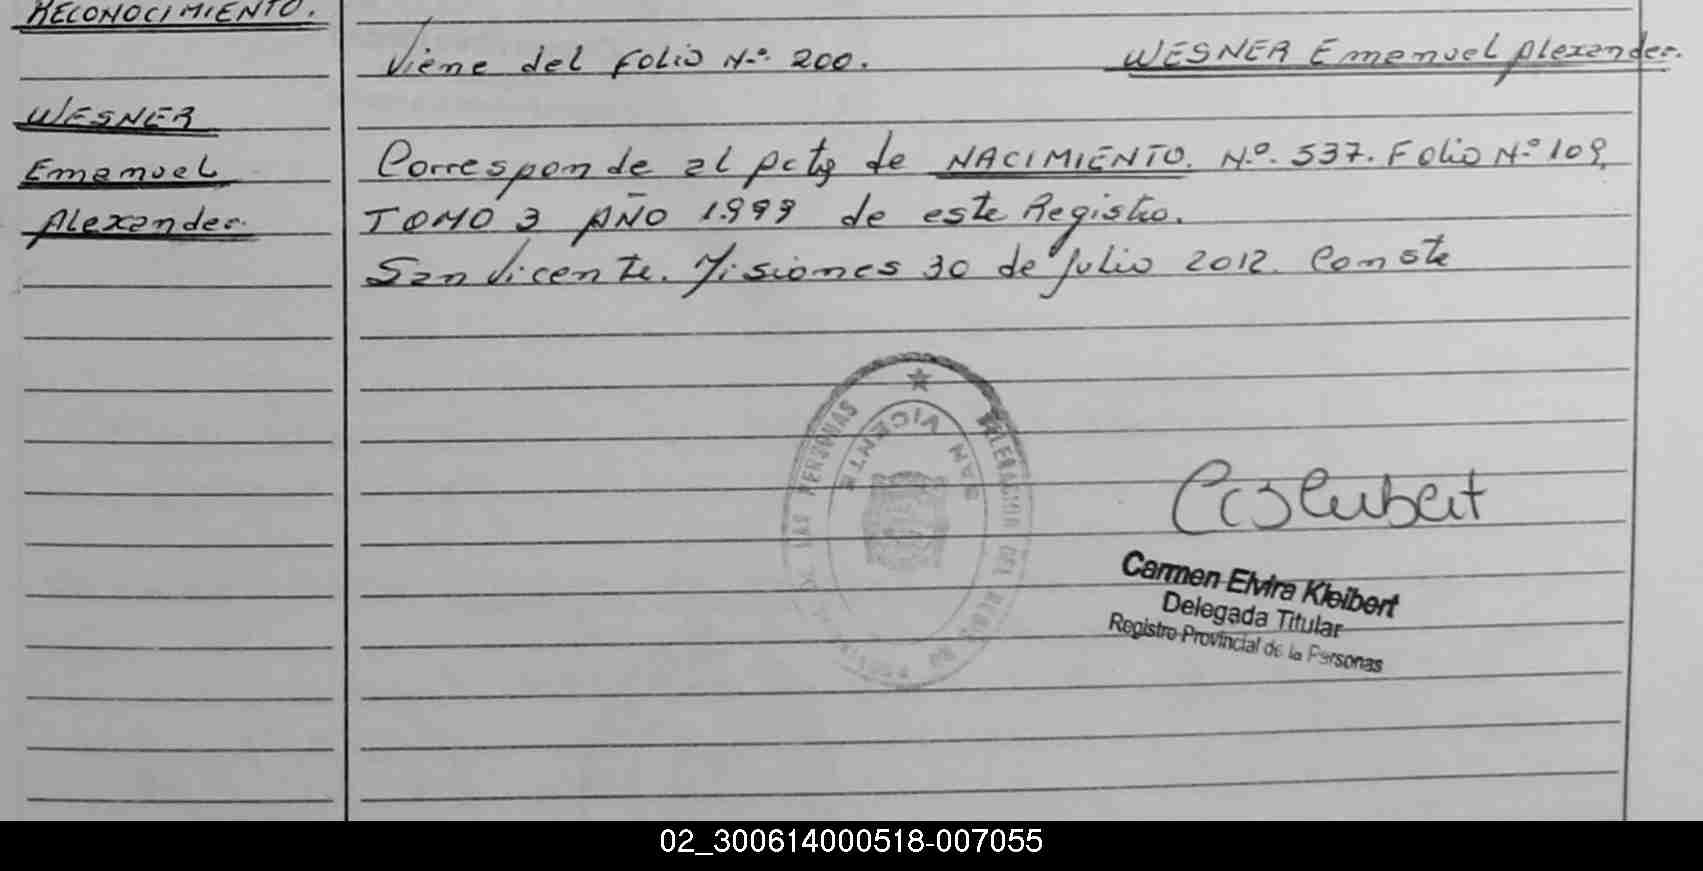 RECONOCIMIENTO.
WESNER
Emanuel
Alexander.
Viene del Folio N.º 200. WESNER Emanuel Alexander.
Corresponde al acta de NACIMIENTO. N.º 537. Folio N.º 109.
TOMO 3 AÑO 1.999 de este Registro.
San Vicente. Misiones 30 de Julio 2012. Conste
SAN VICENTE
DE LAS PERSONAS
DELEGACION DEL
Carmen Elvira Kleibert
Delegada Titular
Registro Provincial de la Personas
02_300614000518-007055